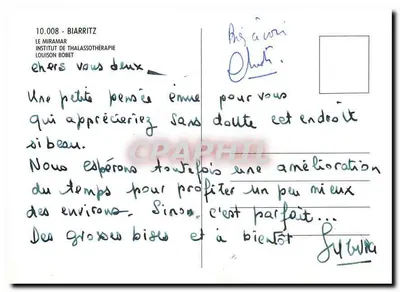 10.008 - BIARRITZ
LE MIRAMAR
INSTITUT DE THALASSOTHÉRAPIE
LOUISON BOBET
chers vous deux
Une petite pensée émue pour vous
qui apprécieriez sans doute cet endroit
si beau.
Nous espérons toutefois une amélioration
du temps pour profiter un peu mieux
des environs. Sinon, c'est parfait...
Des grosses bises et à bientôt
CPAPHIL